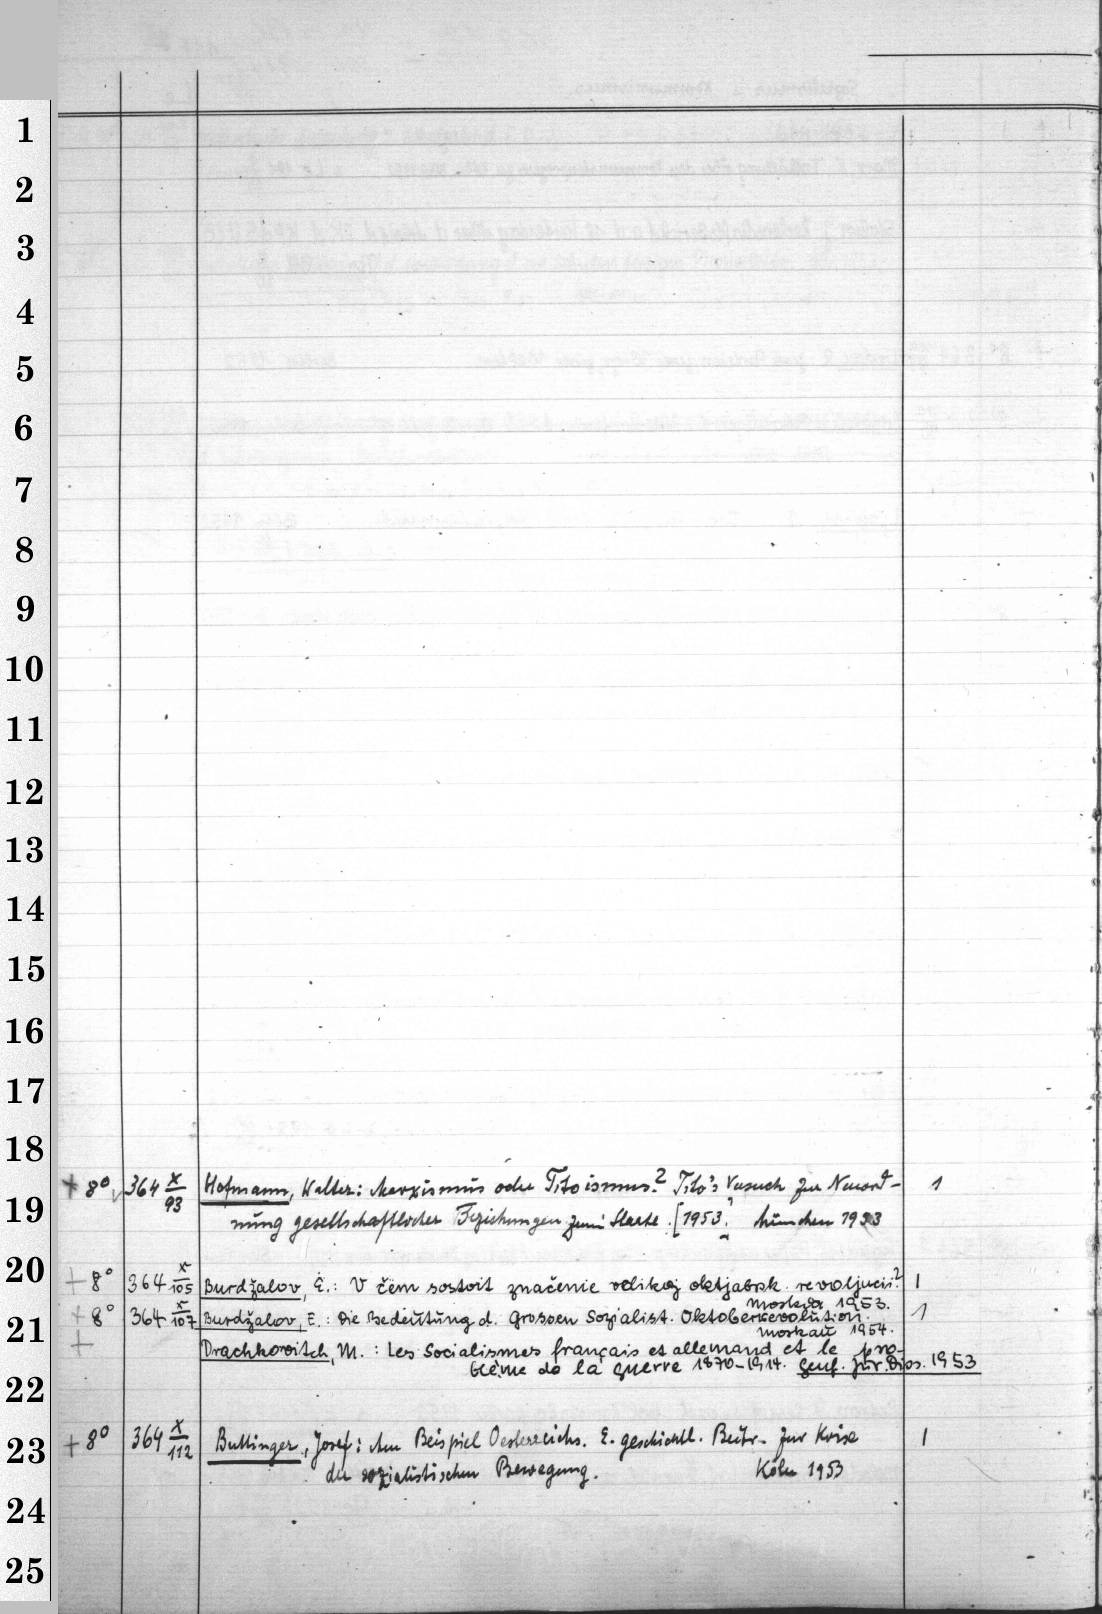 1
2
3
4
5
6
7
8
9
10
11
12
13
14
15
16
17
18
+ 8° 364 x/93 Hofmann, Walter: Marxismus oder Titoismus? Tito's Versuch zur Neuord- 1
19
nung gesellschaftlicher Beziehungen zum Staate. [1953.] München 1953
20
+ 8° 364 x/105 Burdžalov, E.: V čem sostoit značenie velikoj oktjabrsk. revoljucii? 1
Moskva 1953.
+ 8° 364 x/107 Burdžalov, E.: Die Bedeutung d. Grossen Sozialist. Oktoberrevolution. 1
21
Moskau 1954.
+ Drachkovitch, M.: Les Socialismes français et allemand et le pro-
blème de la guerre 1870-1914. Genf. jur. Diss. 1953
22
+ 8° 364 x/112 Buttinger, Josef: Am Beispiel Oesterreichs. E. geschichtl. Beitr. zur Krise 1
23
der sozialistischen Bewegung. Köln 1953
24
25